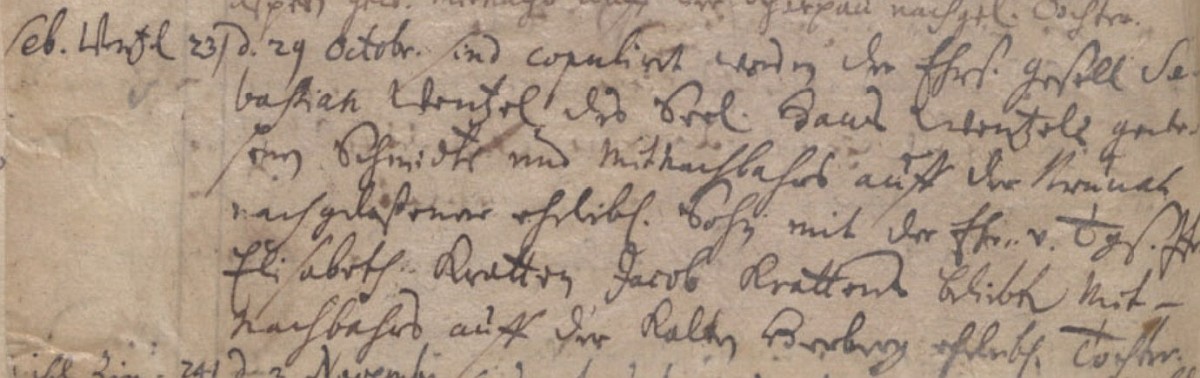 nachgel. Tochter.
Seb. Wentzel 23) d. 29 Octobr. sind copulirt worden der Ehrs. gesell Se-
bastian Wentzel des Seel. Hans Wentzels gewe-
senen Schmidts und Mitnachbahrs auff der
nachgelaßener ehelibl. Sohn mit der Ehr. v. Tgs. Jfr
Elisabeth Kratten Jacob Krattens Mit-
nachbahrs auff der Kalten Herberg ehelibl. Tochter.
241 d. 3 Novembr